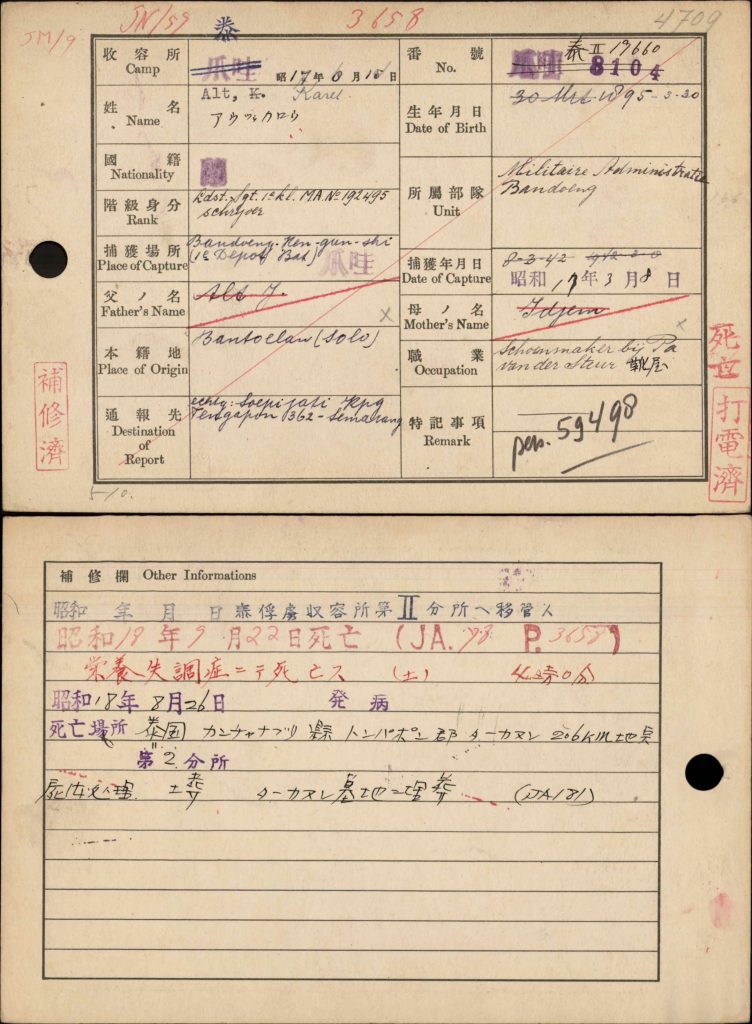 JM/9 JN/59 3658 4709
泰
収容所 Camp 爪哇 昭17年6月15日
番號 No. 爪哇 泰II 19660 8104
姓名 Name Alt, K. Karel
アウフ、カロウ
生年月日 Date of Birth 30 Mrt 1895-3-30
國籍 Nationality 蘭
階級身分 Rank Ldst. Sgt. 1e kl. MA No 192495
schrijver
所屬部隊 Unit Militaire Administratie
Bandoeng
捕獲場所 Place of Capture Bandoeng-Ken-gun-shi
(1e Depot Bat) 爪哇
捕獲年月日 Date of Capture 8-3-42
昭和17年3月8日
父ノ名 Father's Name Alt J. x
母ノ名 Mother's Name Idjem x
本籍地 Place of Origin Bantoelan (Solo)
職業 Occupation Schoenmaker bij Pa
van der Steur 靴屋
通報先 Destination of Report echtg: Soepijati Kpg
Tengapon 1362 - Semarang
特記事項 Remark pers. 59498
補修濟
死亡
打電濟
510.
補修欄 Other Informations
昭和 年 月 日泰俘虜収容所第II分所ヘ移管入
昭和18年9月22日死亡 (JA.98 P.3658)
栄養失調症ニテ死亡ス (土) 4時0分
昭和18年8月26日 発病
死亡場所 泰国 カンチャナブリ 縣 トンパポン郡 ターカヌン 206km地点
第2分所
屍体処理 土葬 ターカヌン墓地ニ埋葬 (JA181)